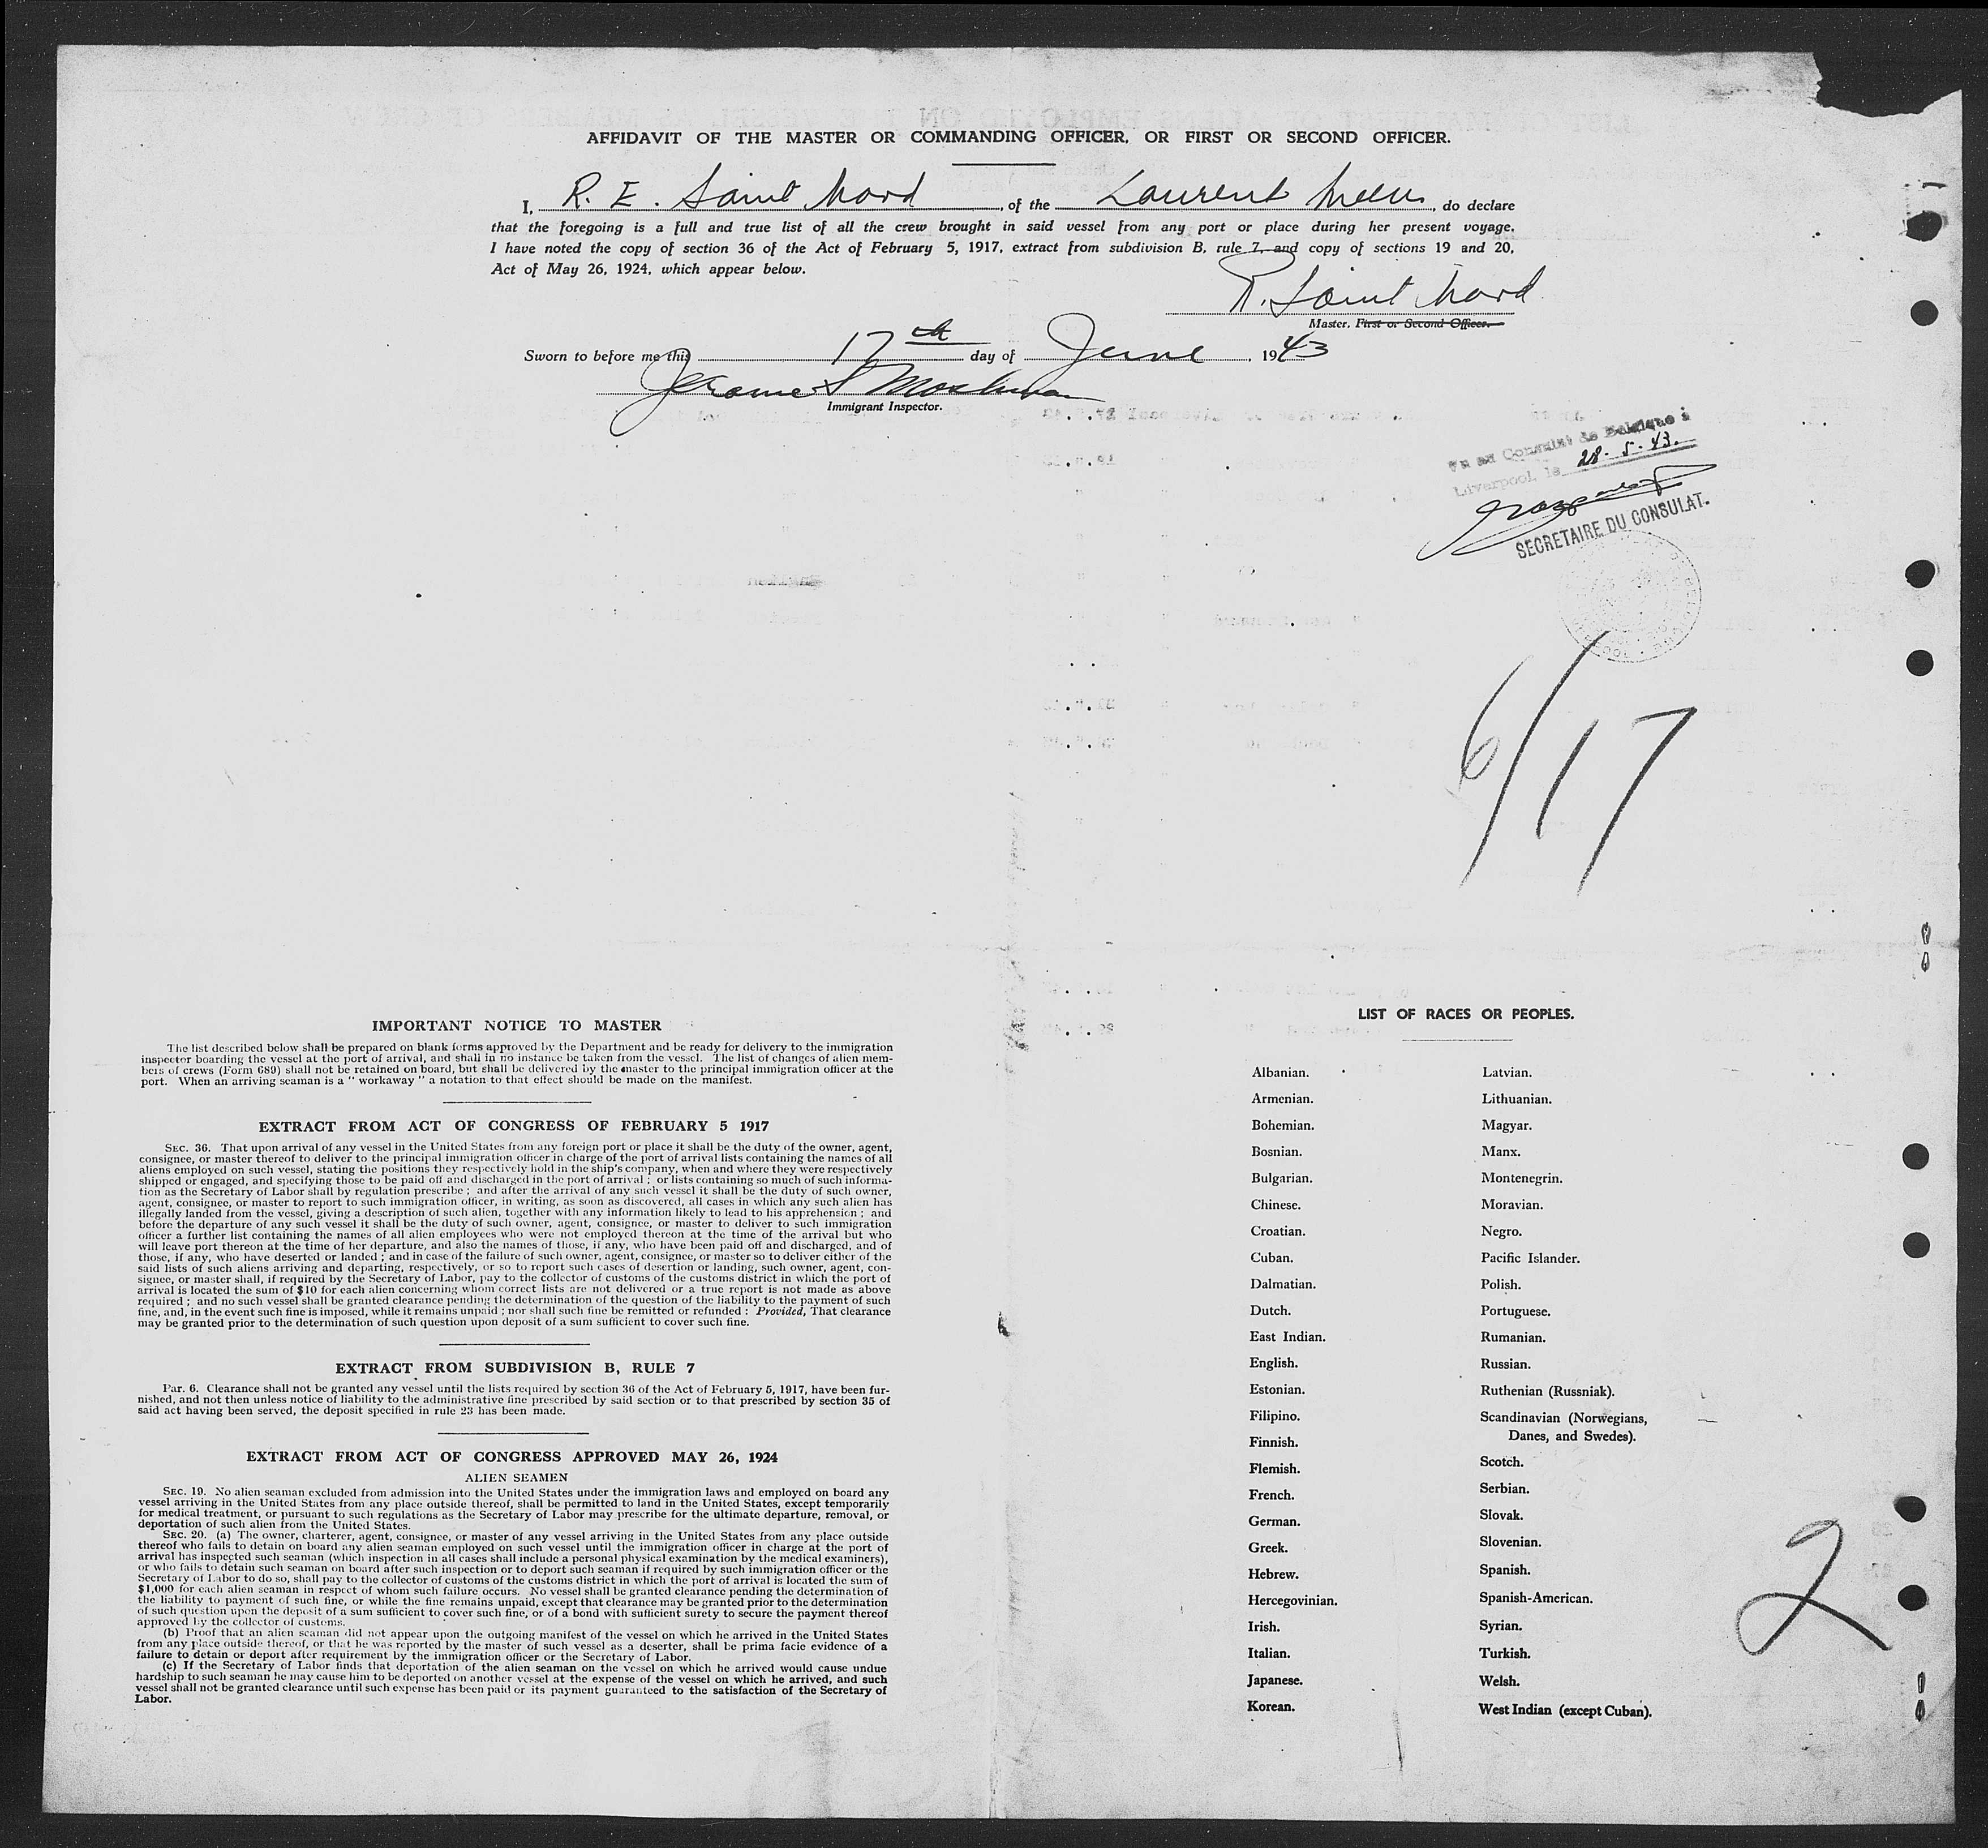 AFFIDAVIT OF THE MASTER OR COMMANDING OFFICER, OR FIRST OR SECOND OFFICER.
I, R. E. Saint Mard, of the Laurent Meeus, do declare
that the foregoing is a full and true list of all the crew brought in said vessel from any port or place during her present voyage.
I have noted the copy of section 36 of the Act of February 5, 1917, extract from subdivision B, rule 7, and copy of sections 19 and 20,
Act of May 26, 1924, which appear below.
R. Saint Mard
Master, First or Second Officer.
Sworn to before me this 17th day of June, 1943
Jerome S
Immigrant Inspector.
Vu au Consulat de Belgique à
Liverpool, le 28.5.43.
SECRETAIRE DU CONSULAT.
6/17
IMPORTANT NOTICE TO MASTER
The list described below shall be prepared on blank forms approved by the Department and be ready for delivery to the immigration
inspector boarding the vessel at the port of arrival, and shall in no instance be taken from the vessel. The list of changes of alien mem-
bers of crews (Form 689) shall not be retained on board, but shall be delivered by the master to the principal immigration officer at the
port. When an arriving seaman is a "workaway" a notation to that effect should be made on the manifest.
EXTRACT FROM ACT OF CONGRESS OF FEBRUARY 5 1917
SEC. 36. That upon arrival of any vessel in the United States from any foreign port or place it shall be the duty of the owner, agent,
consignee, or master thereof to deliver to the principal immigration officer in charge of the port of arrival lists containing the names of all
aliens employed on such vessel, stating the positions they respectively hold in the ship's company, when and where they were respectively
shipped or engaged, and specifying those to be paid off and discharged in the port of arrival; or lists containing so much of such informa-
tion as the Secretary of Labor shall by regulation prescribe; and after the arrival of any such vessel it shall be the duty of such owner,
agent, consignee, or master to report to such immigration officer, in writing, as soon as discovered, all cases in which any such alien has
illegally landed from the vessel, giving a description of such alien, together with any information likely to lead to his apprehension; and
before the departure of any such vessel it shall be the duty of such owner, agent, consignee, or master to deliver to such immigration
officer a further list containing the names of all alien employees who were not employed thereon at the time of the arrival but who
will leave port thereon at the time of her departure, and also the names of those, if any, who have been paid off and discharged, and of
those, if any, who have deserted or landed; and in case of the failure of such owner, agent, consignee, or master so to deliver either of the
said lists of such aliens arriving and departing, respectively, or so to report such cases of desertion or landing, such owner, agent, con-
signee, or master shall, if required by the Secretary of Labor, pay to the collector of customs of the customs district in which the port of
arrival is located the sum of $10 for each alien concerning whom correct lists are not delivered or a true report is not made as above
required; and no such vessel shall be granted clearance pending the determination of the question of the liability to the payment of such
fine, and, in the event such fine is imposed, while it remains unpaid; nor shall such fine be remitted or refunded: Provided, That clearance
may be granted prior to the determination of such question upon deposit of a sum sufficient to cover such fine.
EXTRACT FROM SUBDIVISION B, RULE 7
Par. 6. Clearance shall not be granted any vessel until the lists required by section 36 of the Act of February 5, 1917, have been fur-
nished, and not then unless notice of liability to the administrative fine prescribed by said section or to that prescribed by section 35 of
said act having been served, the deposit specified in rule 23 has been made.
EXTRACT FROM ACT OF CONGRESS APPROVED MAY 26, 1924
ALIEN SEAMEN
SEC. 19. No alien seaman excluded from admission into the United States under the immigration laws and employed on board any
vessel arriving in the United States from any place outside thereof, shall be permitted to land in the United States, except temporarily
for medical treatment, or pursuant to such regulations as the Secretary of Labor may prescribe for the ultimate departure, removal, or
deportation of such alien from the United States.
SEC. 20. (a) The owner, charterer, agent, consignee, or master of any vessel arriving in the United States from any place outside
thereof who fails to detain on board any alien seaman employed on such vessel until the immigration officer in charge at the port of
arrival has inspected such seaman (which inspection in all cases shall include a personal physical examination by the medical examiners),
or who fails to detain such seaman on board after such inspection or to deport such seaman if required by such immigration officer or the
Secretary of Labor to do so, shall pay to the collector of customs of the customs district in which the port of arrival is located the sum of
$1,000 for each alien seaman in respect of whom such failure occurs. No vessel shall be granted clearance pending the determination of
the liability to payment of such fine, or while the fine remains unpaid, except that clearance may be granted prior to the determination
of such question upon the deposit of a sum sufficient to cover such fine, or of a bond with sufficient surety to secure the payment thereof
approved by the collector of customs.
(b) Proof that an alien seaman did not appear upon the outgoing manifest of the vessel on which he arrived in the United States
from any place outside thereof, or that he was reported by the master of such vessel as a deserter, shall be prima facie evidence of a
failure to detain or deport after requirement by the immigration officer or the Secretary of Labor.
(c) If the Secretary of Labor finds that deportation of the alien seaman on the vessel on which he arrived would cause undue
hardship to such seaman he may cause him to be deported on another vessel at the expense of the vessel on which he arrived, and such
vessel shall not be granted clearance until such expense has been paid or its payment guaranteed to the satisfaction of the Secretary of
Labor.
LIST OF RACES OR PEOPLES.
Albanian.
Armenian.
Bohemian.
Bosnian.
Bulgarian.
Chinese.
Croatian.
Cuban.
Dalmatian.
Dutch.
East Indian.
English.
Estonian.
Filipino.
Finnish.
Flemish.
French.
German.
Greek.
Hebrew.
Hercegovinian.
Irish.
Italian.
Japanese.
Korean.
Latvian.
Lithuanian.
Magyar.
Manx.
Montenegrin.
Moravian.
Negro.
Pacific Islander.
Polish.
Portuguese.
Rumanian.
Russian.
Ruthenian (Russniak).
Scandinavian (Norwegians,
Danes, and Swedes).
Scotch.
Serbian.
Slovak.
Slovenian.
Spanish.
Spanish-American.
Syrian.
Turkish.
Welsh.
West Indian (except Cuban).
2